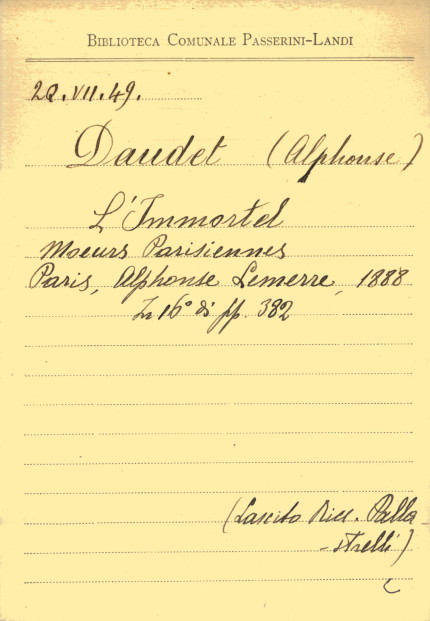 BIBLIOTECA COMUNALE PASSERINI-LANDI
2Q.VII.49.
Daudet (Alphonse)
L'Immortel
Moeurs Parisiennes
Paris, Alphonse Lemerre, 1888
In 16° di pp. 382
(Lascito Ricc. Palla-
-strelli)